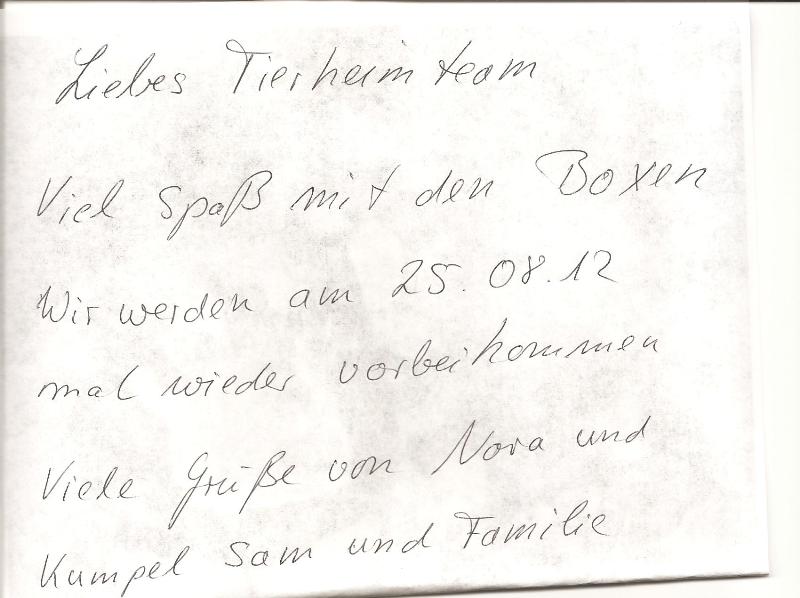 Liebes Tierheimteam
Viel Spaß mit den Boxen
Wir werden am 25.08.12
mal wieder vorbeikommen
Viele Grüße von Nora und
Kumpel Sam und Familie